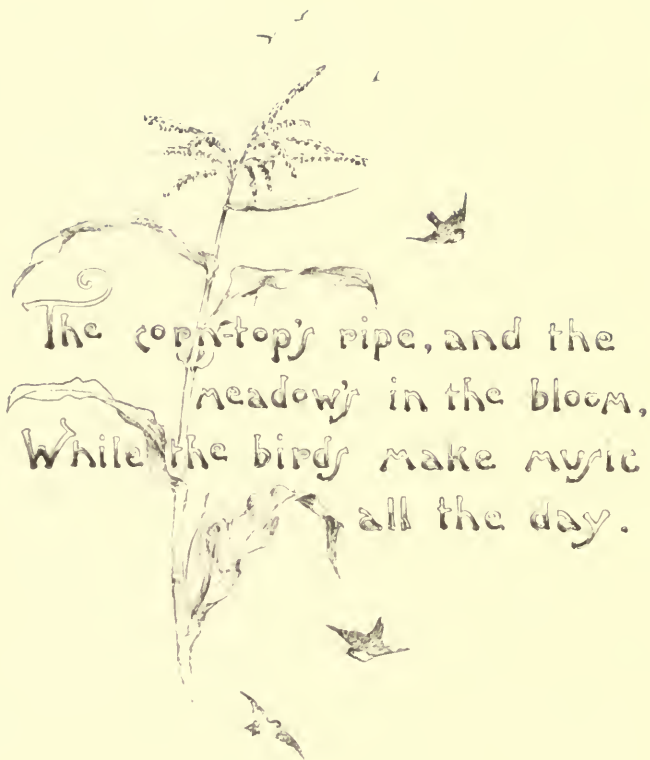 The corn-top's ripe, and the
meadow's in the bloom,
While the birds make music
all the day.